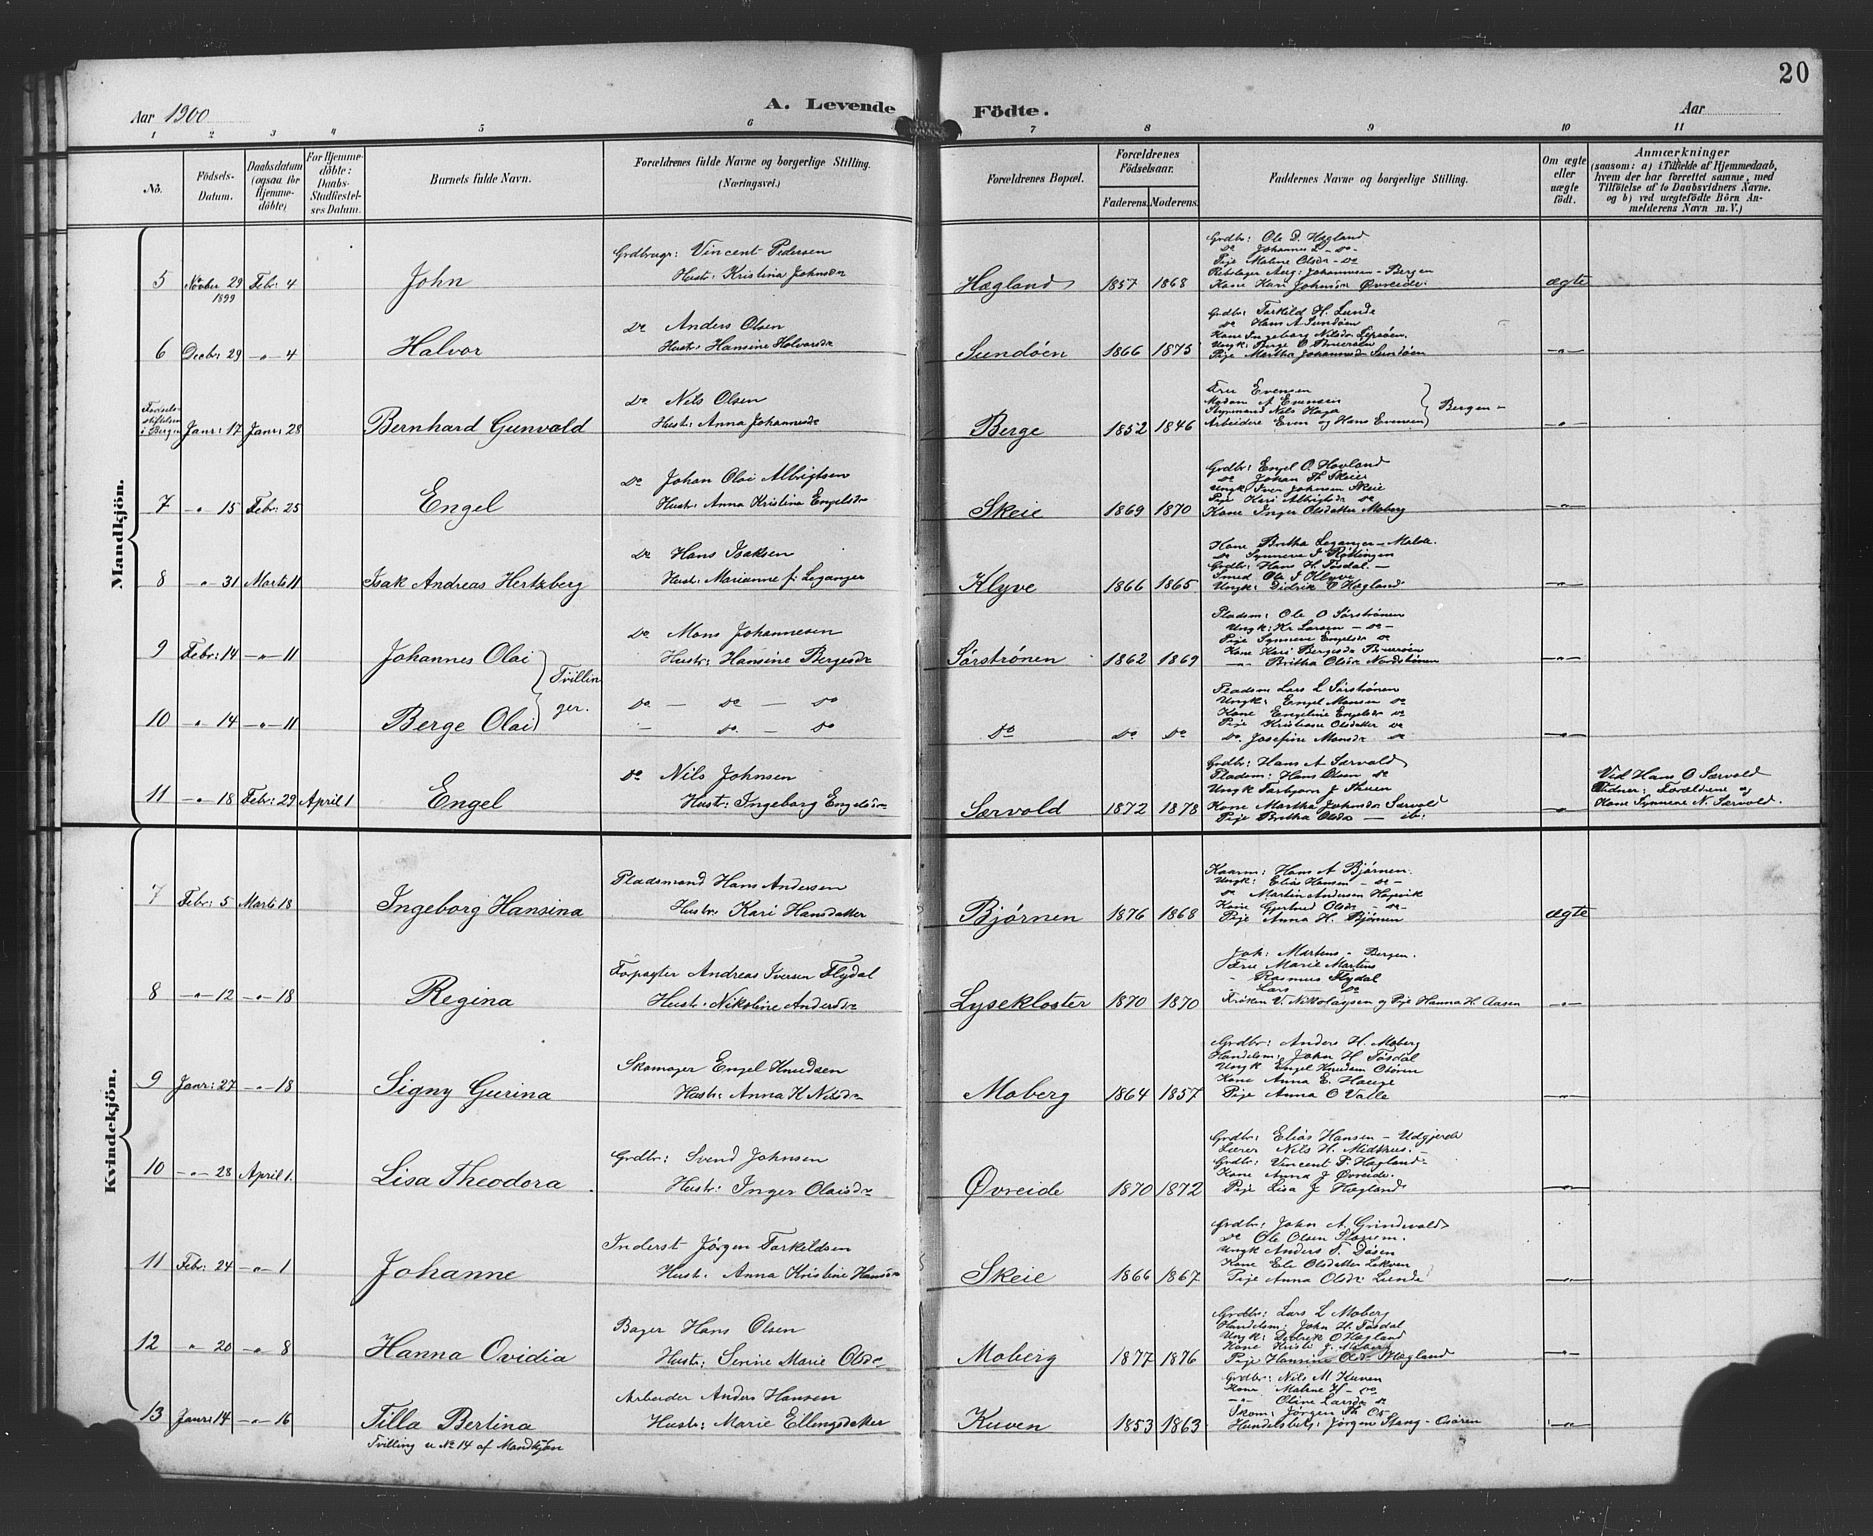 20
Aar 1900
A. Levende Födte.
Aar
1 2 3 4 5 6 7 8 9 10 11
No.
Födsels-Datum.
Daabsdatum (ogsaa for Hjemmedöbte)
For Hjemmedöbte: Daabs-Stadfæstelses Datum.
Barnets fulde Navn.
Forældrenes fulde Navne og borgerlige Stilling. (Næringsvei.)
Forældrenes Bopæl.
Forældrenes Födselsaar.
Faderens. Moderens.
Faddernes Navne og borgerlige Stilling.
Om ægte eller uægte födt.
Anmærkninger
(saasom: a) i Tilfælde af Hjemmedaab, hvem der har forrettet samme, med Tilföielse af to Daabsvidners Navne. og b) ved uægtefödte Börn Anmelderens Navn m. V.)
Mandkjön.
5 Novber 29 1899 Febr: 4 John
Grdbrugr: Vincent Pedersen
Hustr: Kristina Johnsdr
Hægland 1857 1868
Grdbr: Ole D. Hægland
Do Johannes L - do -
Pige Malene Olsdr - do
Rebslager Aug: Johannesen - Bergen
Kone Kari Johnsdr Øvreide.
ægte
6 Decbr: 29 -"- 4 Halvor
Do Anders Olsen
Hustr: Hansine Halvorsdr
Sundöen 1866 1875
Grdbr: Tarkild H. Lunde
Do Hans A Sundöen
Kone Ingeborg Nilsdr Lepsöen.
Ungk: Berge O Bruaröen
Pige Martha Johannesdr Sundöen
-"-
Födsels-stiftelsen i Bergen Janr: 17 Janr: 28 Bernhard Gunvald
Do Nils Olsen
Hustr: Anna Johannesdr
Berge 1852 1846
Frue Evensen
Madam A Evensen
Styrmand Nils Haga
Arbeidere Even og Hans Evensen
Bergen -
-"-
7 -"- 15 Febr: 25 Engel
Do Johan Olai Albrigtsen
Hustr: Anna Kristina Engelsdr
Skeie 1869 1870
Grdbr: Engel O. Hovland
Do Johan Th. Skeie
Ungk: Iver Johnsen Skeie
Pige Kari Albrigtsdr do
Kone Inger Olsdatter Moberg
-"-
8 -"- 31 Marts 11 Isak Andreas Hertzberg
Do Hans Isaksen
Hust: Marianne f: Leganger
Klyve 1866 1865
Kone Britha Leganger - Malde.
Do Synneve I Röttingen
Grdbr: Hans H. Tösdal -
Smed Ole I Klyve
Ungk: Didrik O Hægland
-"-
9 Febr: 14 -"- 11 Johannes Olai
Tvillinger.
Do Mons Johannesen
Hustr: Hansine Bergesdr
Sörströnen 1862 1869
Pladsm: Ole O Sörströnen
Ungk: Kr Larsen - do -
Pige Synneve Engelsdr do
Kone Kari Bergesdr Bruaröen
-"- Britha Olsdr Nordströnen
-"-
10 " 14 -"- 11 Berge Olai
Do - Do - Do
- Do - Do
Do Do Do
Pladsm Lars L Sörströnen
Ungk: Engel Monsen do
Kone Engeline Engelsdr do
Pige Kristiane Olsdatter do
Do. Josefine Monsdr do
-"-
11 -"- 18 Febr: 29 April 1 Engel
Do Nils Johnsen
Hust: Ingeborg Engelsdr
Særvold 1872 1878
Grdbr: Hans A Særvold
Pladsm: Hans Olsen do
Ungk Torbjorn J Tuen
Kone Martha Johnsdr Særvold
Pige Britha Olsdr - ib:
-"-
Ved Hans O Særvold
Vidner: Forældrene og
Kone Synneve N. Særvold.
Kvindekjön.
7 Febr: 5 Marts 18 Ingeborg Hansina
Pladsmand Hans Andersen
Hustr Kari Hansdatter
Bjørnen 1876 1868
Kaarm: Hans A Bjørnen.
Ungk: Elias Hansen - do -
Do Martin Andersen Høyevik
Kone Gjertrud Olsdr - do -
Pige Anna H. Bjørnen
ægte
8 -"- 12 -"- 18 Regina
Forpagter Andreas Iversen Flydal
Hust: Nikoline Andersdr
Lysekloster 1870 1870
Joh: Martens - Bergen.
Frue Marie Martens
- Rasmus Flydal
- Lars - Do
Fröken V. Nikolaysen og Pige Hanna H. Aasen
-"-
9 Janr: 27 -"- 18 Signy Gurina
Skomager Engel Knudsen
Hust: Anna H Nilsdr
Moberg 1864 1857
Grdbr: Anders H. Moberg
Handelsm: John H Tösdal
Ungk Engel Knudsen Osören
Kone Anna E. Hauge
Pige Anna O Valle
-"-
10 -"- 28 April 1. Lisa Theodora
Grdbr: Svend Johnsen
Hustr: Inger Olaisdr
Øvreide 1870 1872
Grdbr: Elias Hansen - Udgjerde
Lærer Nils H. Midthus. -
Grdbr: Vincent P. Hægland
Kone Anna J Øvreide.
Pige Lisa J Hægland
-"-
11 Febr: 24 -"- 1 Johanne
Inderst Jørgen Tarkildsen
Hust: Anna Kristine Hansdr
Skeie 1866 1867
Grdbr: John A. Grindevold
Do Ole Olsen
Ungk Anders T. Dösen
Kone Eli Olsdatter Lekven
Pige Anna Olsdr Lunde
-"-
12 " 20 -"- 8 Hanna Ovidia
Bager Hans Olsen
Hustr: Serine Marie Olsdr
Moberg 1877 1876
Grdbr: Lars L Moberg
Handelsm: John H. Tösdal
Ungk: Didrik O Hægland
Kone Kristi J. Moberg
Pige Hansine Olsdr Hægland
-"-
13 Janr: 14 -"- 16 Tilla Bertina
Tvilling u No 14 af Mandkjøn
Arbeider Anders Hansen
Hustr: Marie Ellingsdatter
Kuven 1853 1863
Grdbr: Nils M Kuven
Kone Malene H - do
-"- Oline Larsdr do
Skom: Jörgen Th. Os
Handelsbetj: Jörgen Stang - Osören
-"-